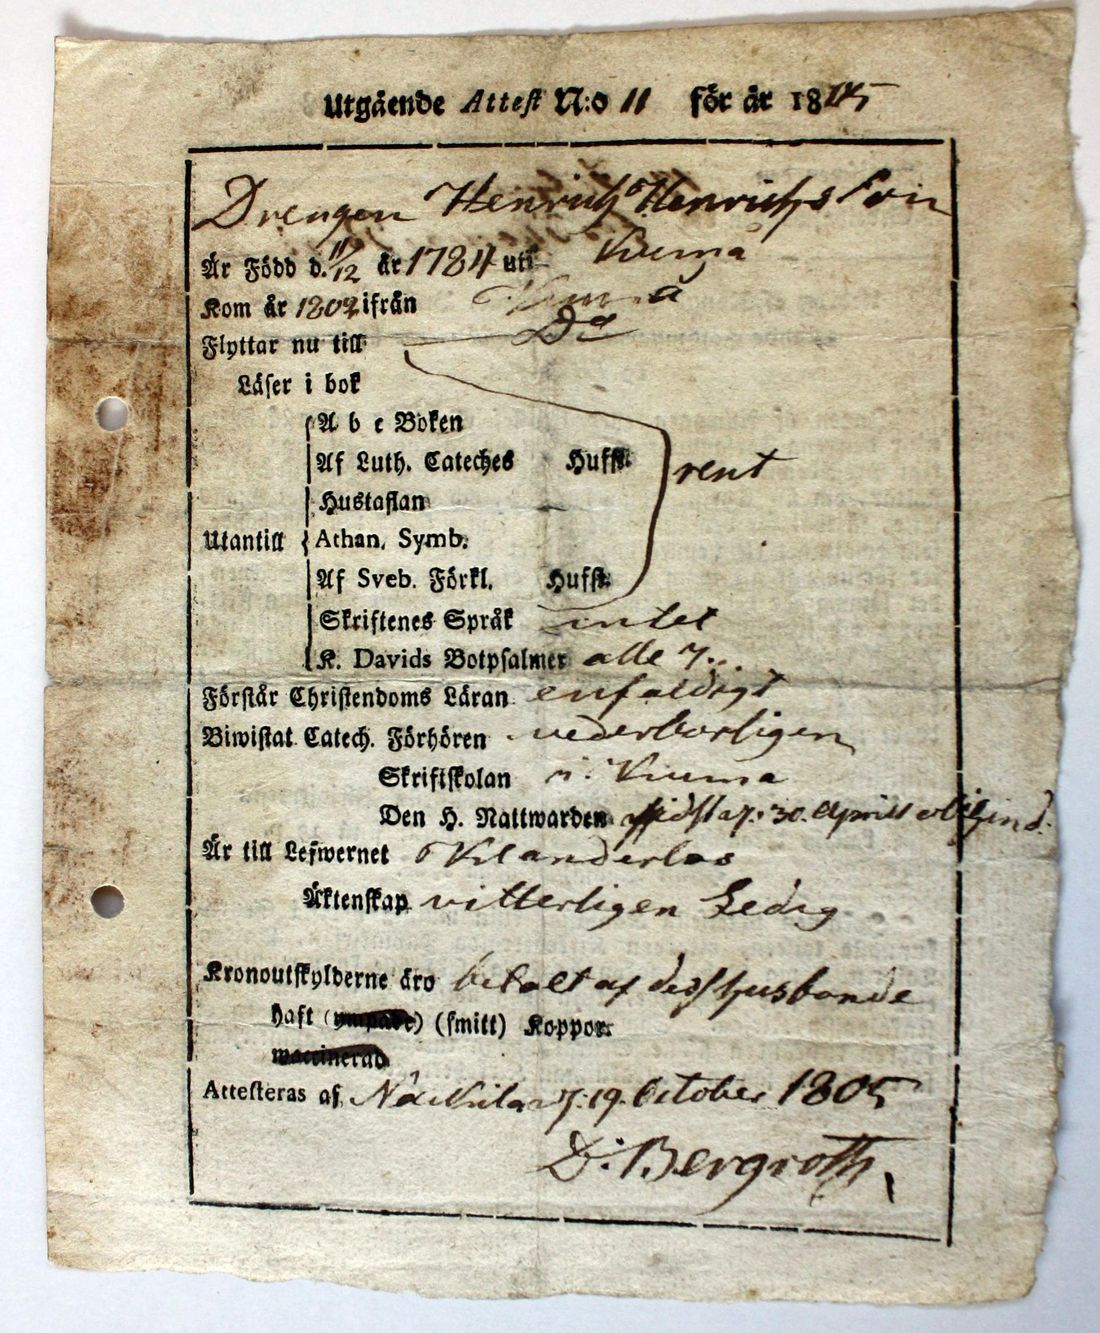 Utgående Attest N:o 11 för år 1805
Drengen Henrich Henrichsson
Är Född d. 11/12 år 1784 uti Kiuma
Kom år 1802 ifrån
Flyttar nu till Do
Läser i bok
A b c Boken
Af Luth. Cateches Hufst. rent
Hustaflan
Utantill Athan. Symb.
Af Sveb. Förkl. Hufst.
Skriftenes Språk intet
K. Davids Botpsalmer alle 7
Förstår Christendoms Läran enfaldigt
Biwistat Catech. Förhören vederborligen
Skriftskolan i Kiuma
Den H. Nattwarden sidst 30. April
Är till Lefwernet oklanderlos
Äktenskap vitterligen Ledig
Kronoutskylderne äro betalt af dess husbonde
haft (smitt) Koppor.
waccinerad
Attesteras af 19. October 1805
D. Bergroth